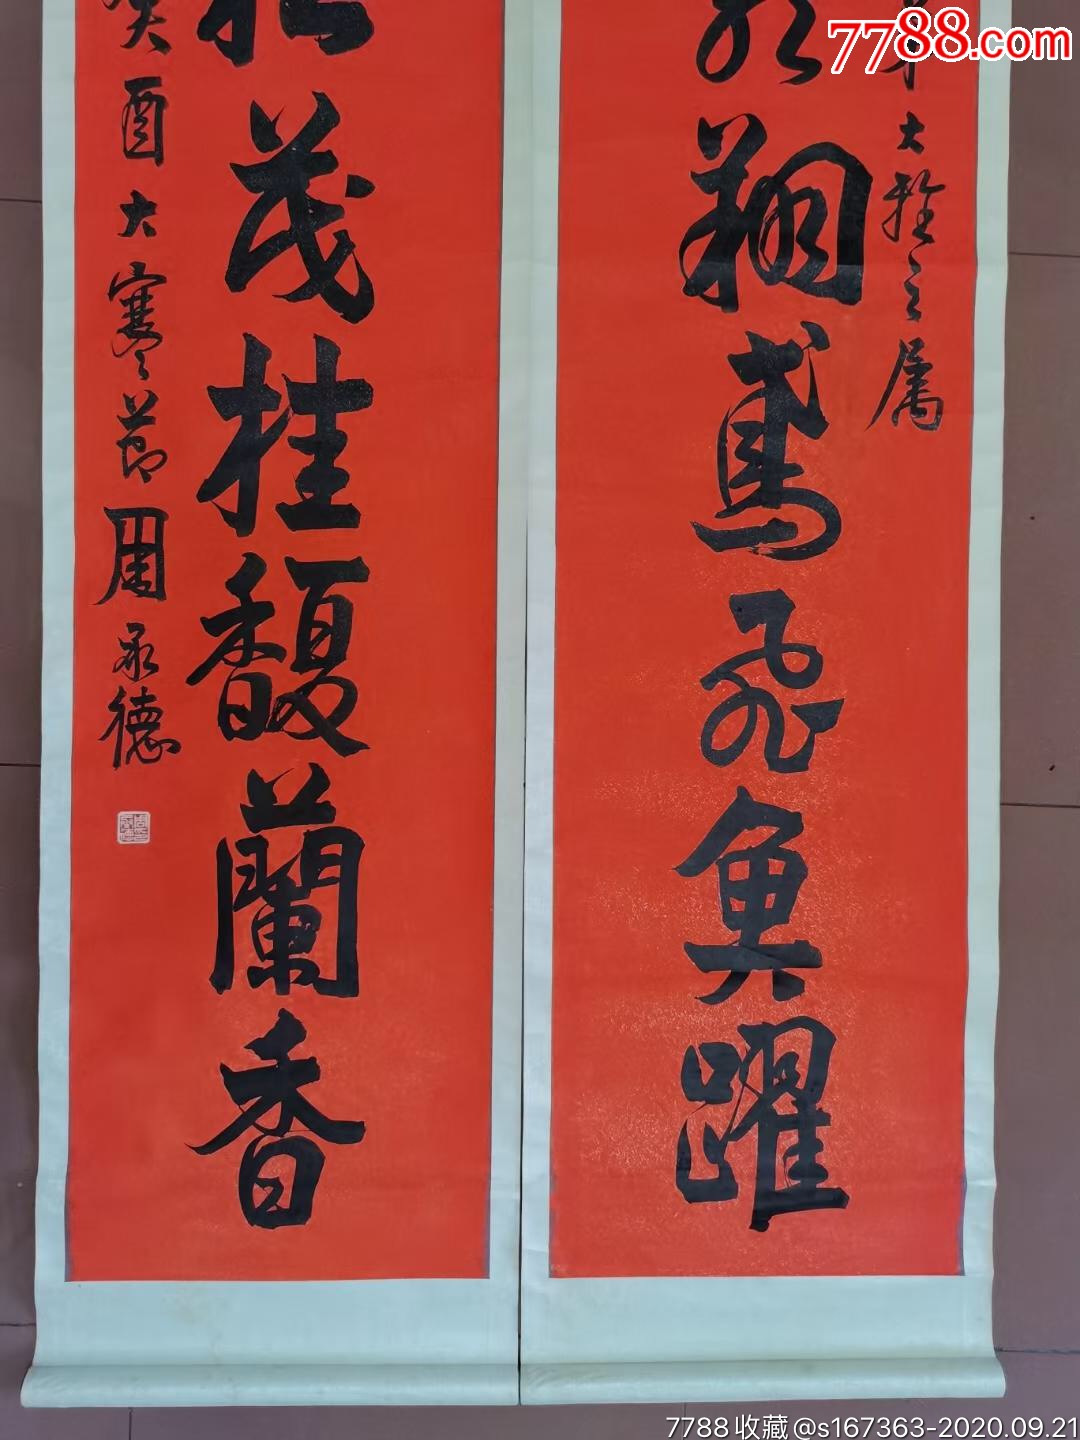 7788.com
翔鳶飛魚躍
大雅之属
松茂桂馥蘭香
癸酉大寒節周承德
7788收藏@s167363-2020.09.21